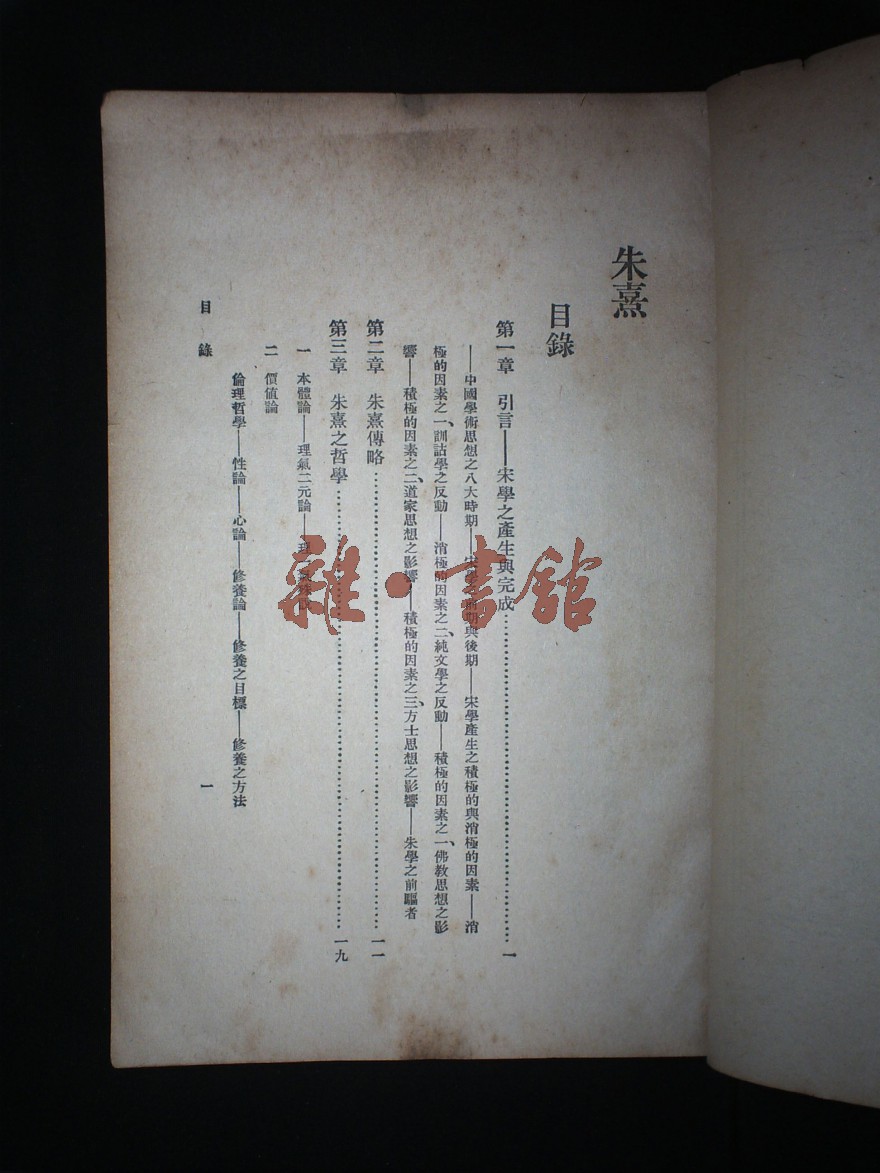 朱熹
目錄
第一章　引言——宋學之產生與完成……一
——中國學術思想之八大時期——宋學之前期與後期——宋學產生之積極的與消極的因素——消
極的因素之一、訓詁學之反動——消極的因素之二、純文學之反動——積極的因素之一、佛教思想之影
響——積極的因素之二、道家思想之影響——積極的因素之三、方士思想之影響——朱學之前驅者
第二章　朱熹傳略……一一
第三章　朱熹之哲學……一九
一　本體論——理氣二元論——理
二　價值論
倫理哲學——性論——心論——修養論——修養之目標——修養之方法
目錄　一
雜·書館